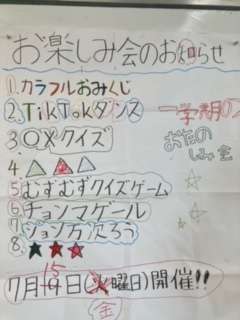 お楽しみ会のお知らせ
1.カラフルおみくじ
2.TikTokダンス
一学期の
3.〇×クイズ
お楽の
しみ会
4.△△△
5.むずむずクイズゲーム
6.チョンマゲール
7.ジョン万次ろう
8.★★★
7月15日(金曜日)開催!!